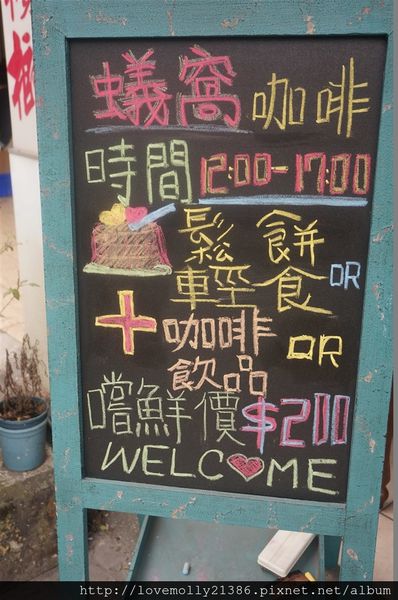 蟻窩咖啡
時間 12:00-17:00
鬆餅
輕食 OR
+ 咖啡 OR
飲品
嚐鮮價 $200
WELCOME
http://lovemolly21386.pixnet.net/album